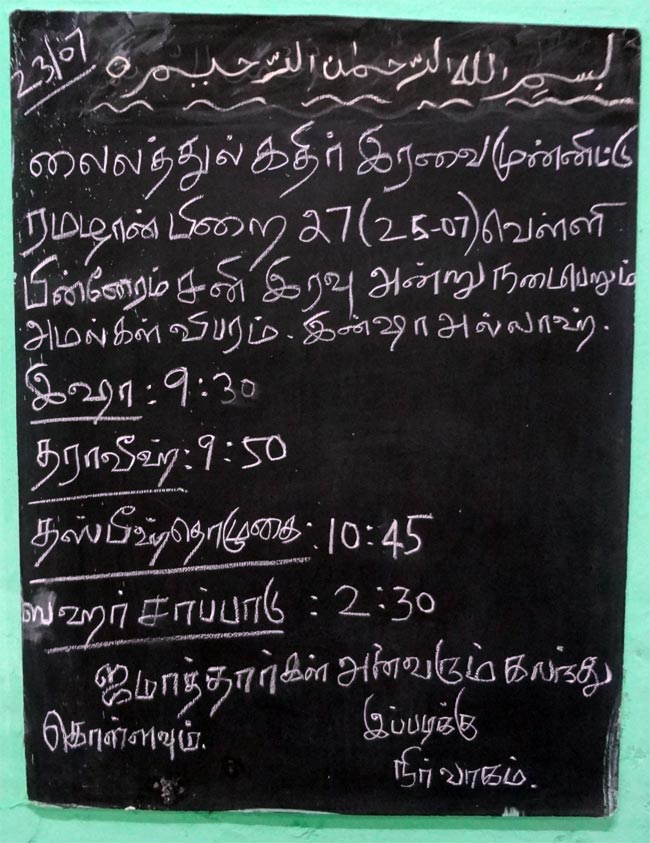 23/07
بسم الله الرحمن الرحيم
லைலத்துல் கதிர் இரவை முன்னிட்டு
ரமழான் பிறை 27 (25-07) வெள்ளி
பின்னேரம் சனி இரவு அன்று நடைபெறும்
அமல்கள் விபரம். இன்ஷா அல்லாஹ்.
இஷா : 9:30
தராவீஹ் : 9:50
தஸ்பீஹ் தொழுகை : 10:45
ஸஹர் சாப்பாடு : 2:30
ஜமாத்தார்கள் அனைவரும் கலந்து
கொள்ளவும்.
இப்படிக்கு
நிர்வாகம்.